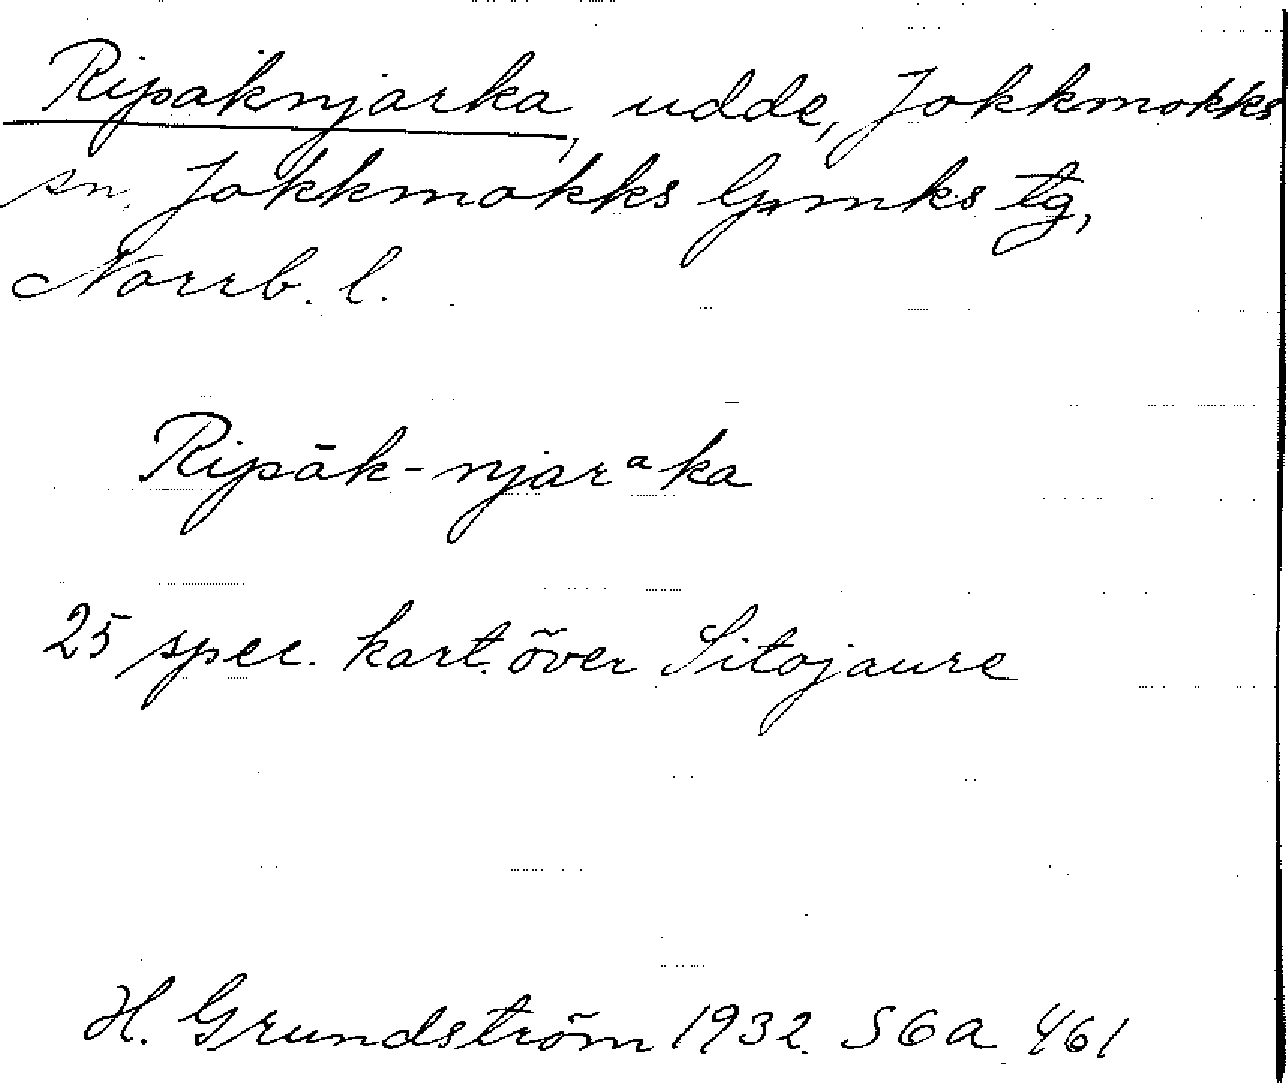 Ripaknjarka, udde, Jokkmokks
sn, Jokkmokks lpmks tg,
Norrb. l.
Ripāk-njarᵃka
25 spec. kart. över Sitojaure
H. Grundström 1932. S6a 461